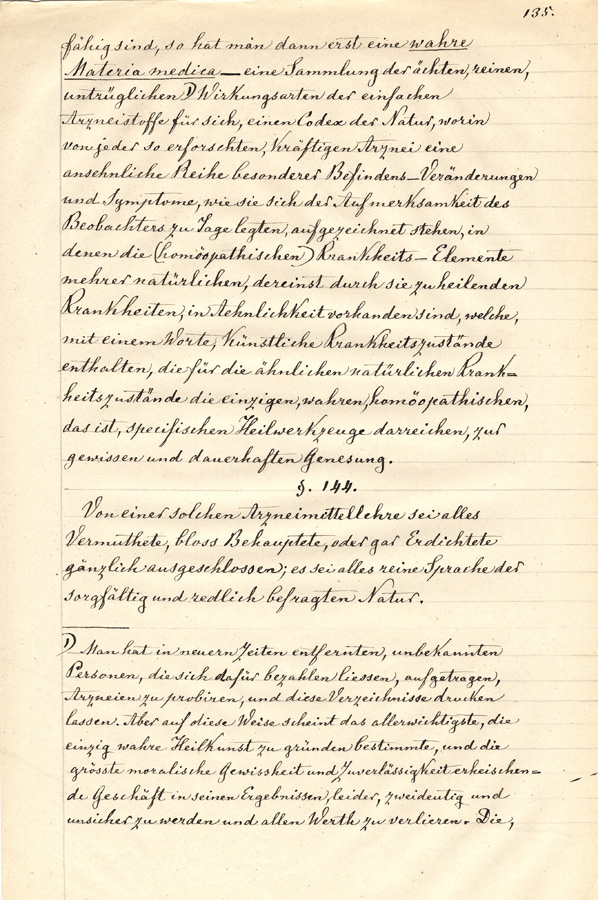 135.
fähig sind, so hat man dann erst eine wahre
Materia medica — eine Sammlung der ächten, reinen,
untrüglichen 1) Wirkungsarten der einfachen
Arzneistoffe für sich, einen Codex der Natur, worin
von jeder so erforschten, kräftigen Arznei eine
ansehnliche Reihe besonderer Befindens-Veränderungen
und Symptome, wie sie sich der Aufmerksamkeit des
Beobachters zu Tage legten, aufgezeichnet stehen, in
denen die (homöopathischen) Krankheits-Elemente
mehrer natürlichen, dereinst durch sie zu heilenden
Krankheiten, in Aehnlichkeit vorhanden sind, welche,
mit einem Worte, künstliche Krankheitszustände
enthalten, die für die ähnlichen natürlichen Krank=
heitszustände die einzigen, wahren, homöopathischen,
das ist, specifischen Heilwerkzeuge darreichen, zur
gewissen und dauerhaften Genesung.
§. 144.
Von einer solchen Arzneimittellehre sei alles
Vermuthete, bloss Behauptete, oder gar Erdichtete
gänzlich ausgeschlossen; es sei alles reine Sprache der
sorgfältig und redlich befragten Natur.
1) Man hat in neuern Zeiten entfernten, unbekannten
Personen, die sich dafür bezahlen liessen, aufgetragen,
Arzneien zu probiren, und diese Verzeichnisse drucken
lassen. Aber auf diese Weise scheint das allerwichtigste, die
einzig wahre Heilkunst zu gründen bestimmte, und die
grösste moralische Gewissheit und Zuverlässigkeit erheischen=
de Geschäft in seinen Ergebnissen, leider, zweideutig und
unsicher zu werden und allen Werth zu verlieren. Die,